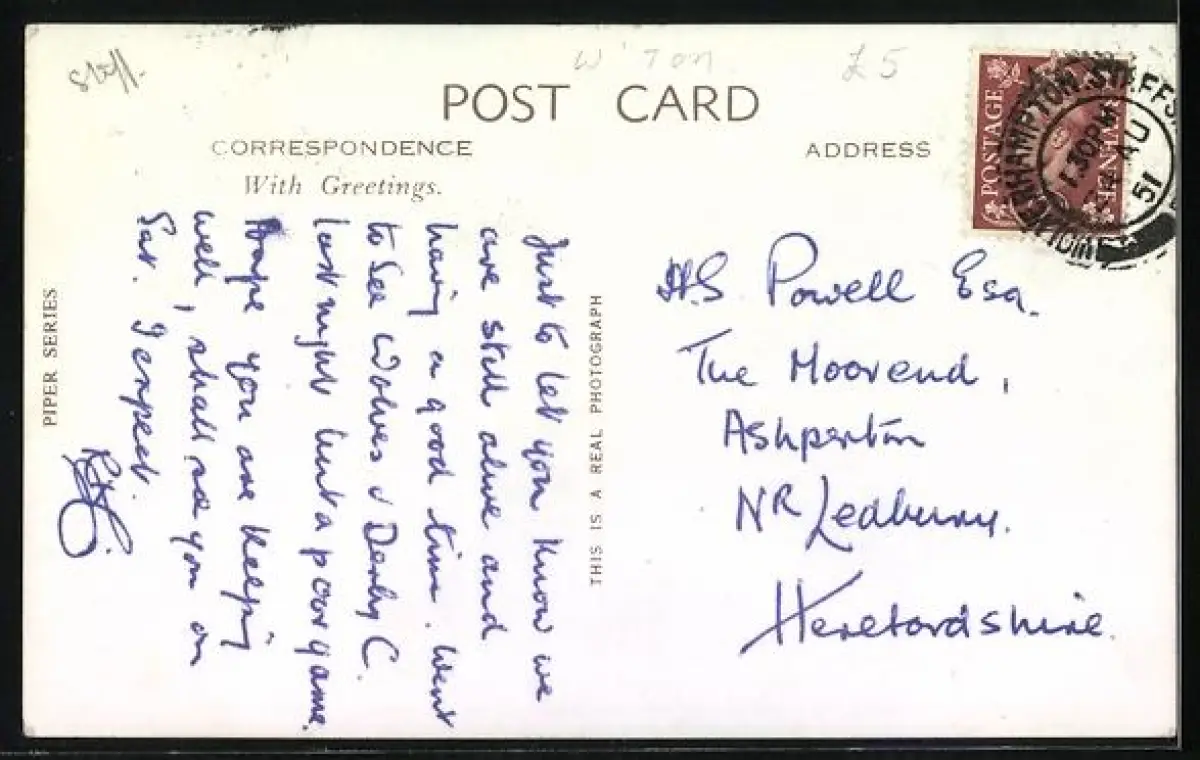 Staff.
W'TON
£5
POST CARD
CORRESPONDENCE
ADDRESS
With Greetings.
POSTAGE
REVENUE
WOLVERHAMPTON STAFFS
1.30PM
AU
51
Just to let you know we
are still alive and
having a good time. Went
to see Wolves v Derby C.
last night but a poor game.
Hope you are keeping
well, shall see you on
Sat. I expect.
THIS IS A REAL PHOTOGRAPH
PIPER SERIES
H.S Powell Esq.
The Moorend,
Ashperton
NR Ledbury.
Herefordshire.